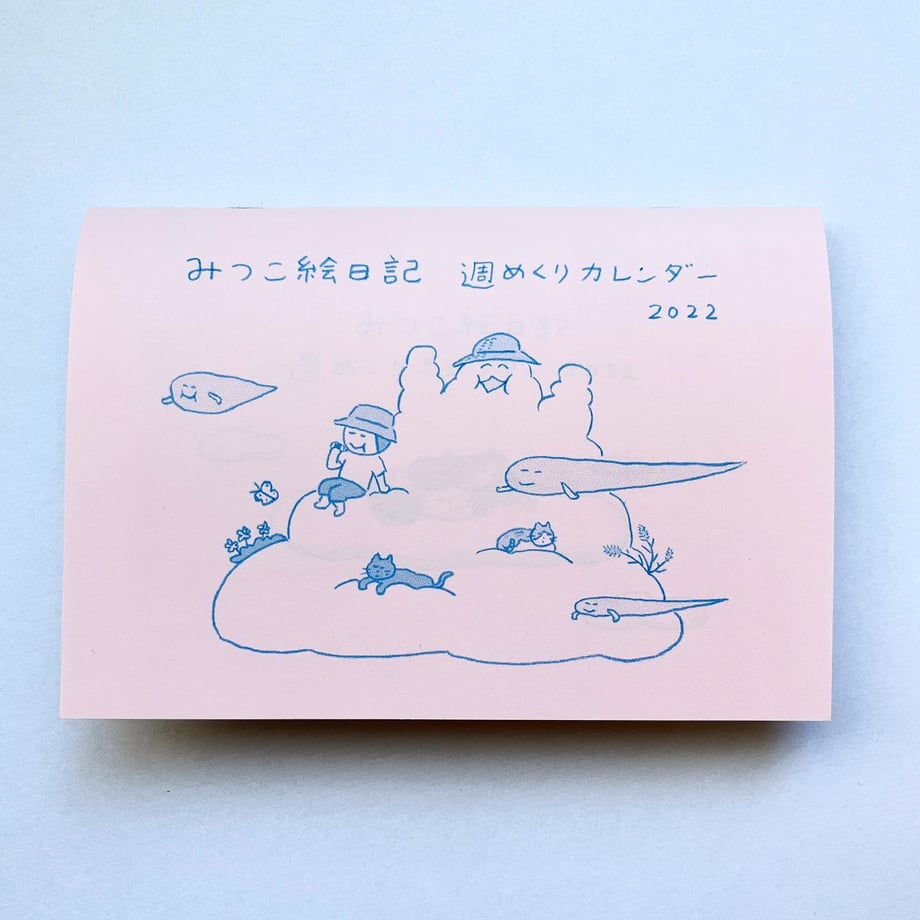 みつこ絵日記 週めくりカレンダー
2022